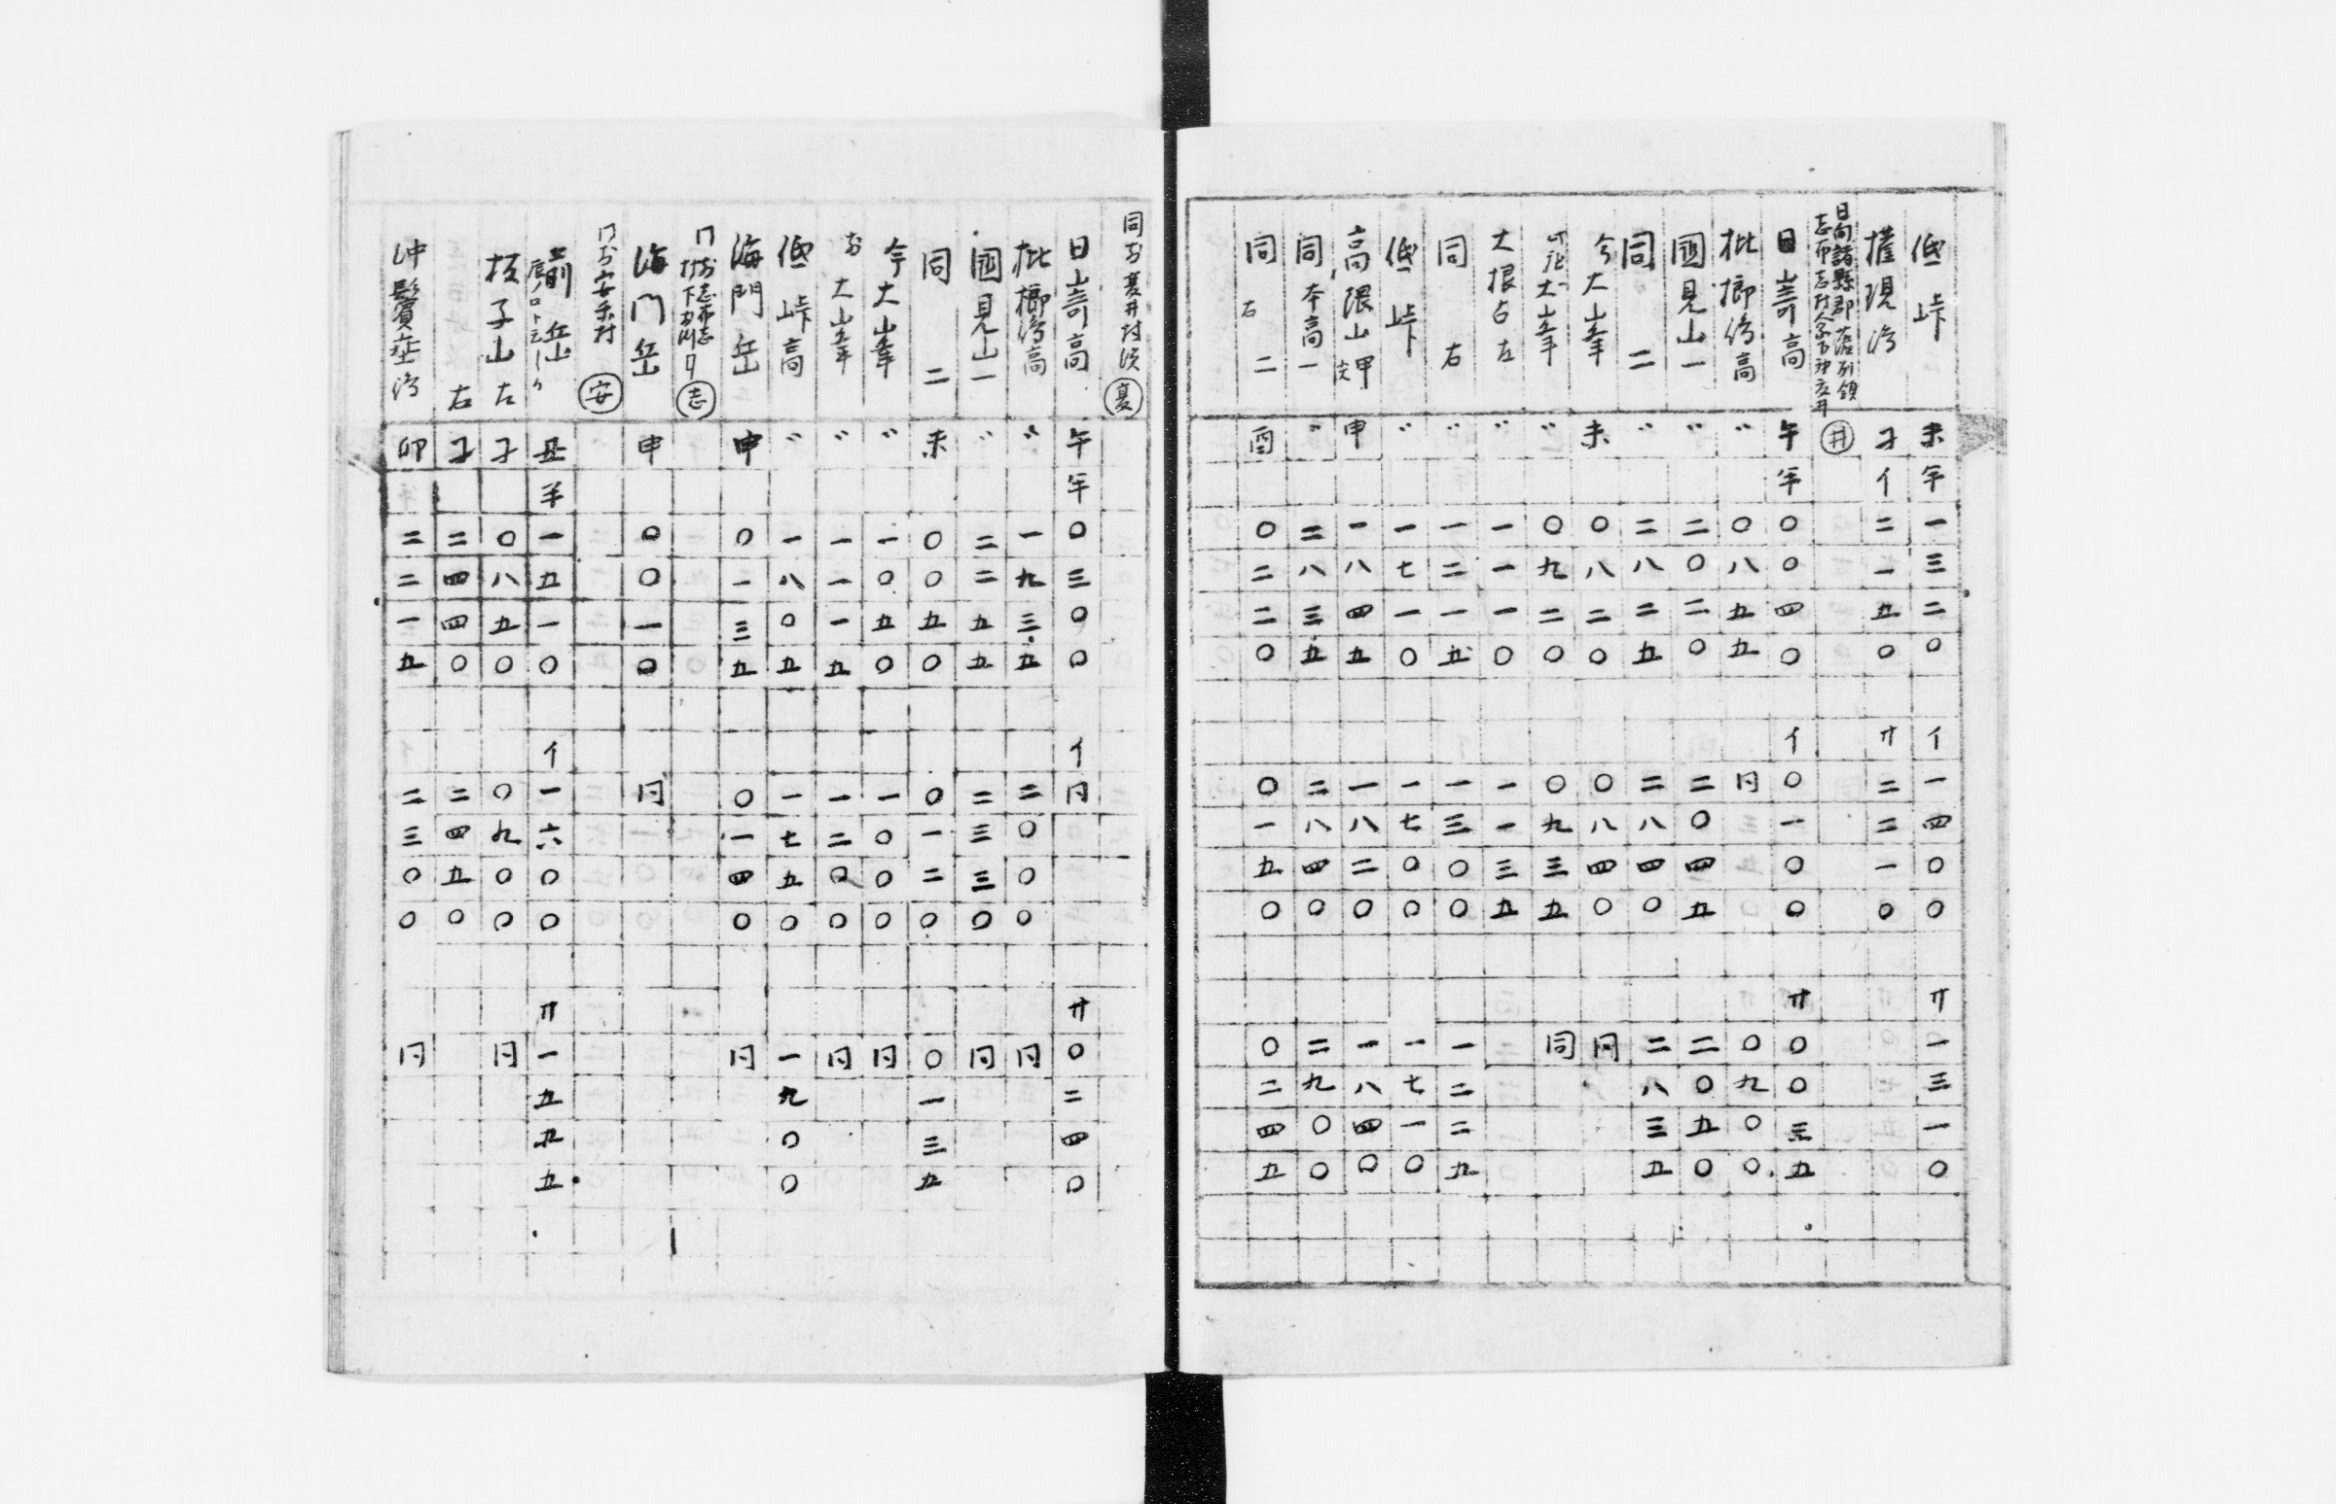 低峠 未 午 一三二〇 イ 一四〇〇 サ 一三一〇
権現湾 子 イ 二一五〇 サ 二二一〇
日向諸縣郡
志布志村 井
日嵜高 午 午 〇〇四〇 イ 〇一〇〇 サ 〇〇三五
枇榔湾高 〃 〇八五五 同 〇九〇〇
國見山一 〃 二〇二〇 二〇四五 二〇五〇
同 二 〃 二八二五 二八四〇 二八三五
今大山峯 未 〇八二〇 〇八四〇 同
大山峯 〃 〇九二〇 〇九三五 同
大根占左 〃 一一一〇 一一三五
同 右 〃 一二一五 一三〇〇 一二二九
低峠 〃 一七一〇 一七〇〇 一七一〇
高隈山甲 申 一八四五 一八二〇 一八四〇
同 本高一 〃 二八三五 二八四〇 二九〇〇
同 右 二 酉 〇二二〇 〇一五〇 〇二四五
同 夏井村 夏
日嵜高 午 午 〇三〇〇 イ 同 サ 〇二四〇
枇榔湾高 〃 一九三五 二〇〇〇 同
國見山一 〃 二二五五 二三三〇 同
同 二 未 〇〇五〇 〇一二〇 〇一三五
今大山峯 〃 一〇五〇 一〇〇〇 同
大山峯 〃 一一一五 一二〇〇 同
低峠高 〃 一八〇五 一七五〇 一九〇〇
海門岳 申 〇一三五 〇一四〇 同
志布志村 志
海門岳 申 〇〇一〇 同
安楽村 安
岳 丑 羊 一五一〇 イ 一六〇〇 サ 一五五五
子山 左 子 〇八五〇 〇九〇〇 同
右 子 二四四〇 二四五〇
卯 二二一五 二三〇〇 同